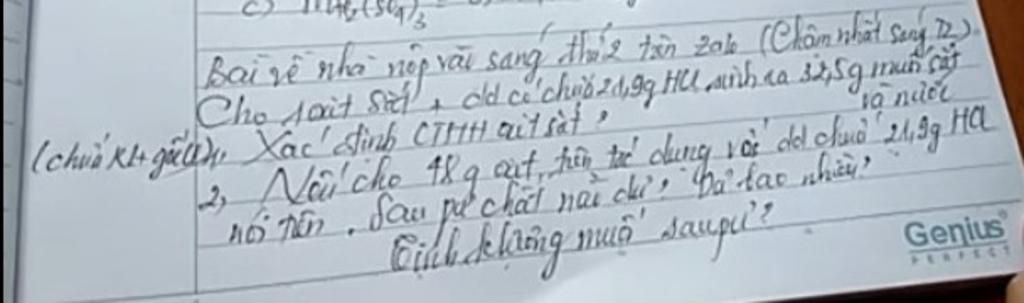 c)
Bài về nhà nộp vào sáng thứ 2 trên zalo (Chậm nhất sáng T2)
Cho 1 oxit sắt + dd có chứa 21,9g HCl sinh ra 32,5g muối sắt
và nước
(chứa Kl + gốc
1, Xác định CTHH oxit sắt?
2, Nếu cho 48g oxit trên tác dụng với dd chứa 21,9g HCl
nói trên. Sau pư chất nào dư? Dư bao nhiêu?
Tính khối lượng muối sau pư?
Genius
PERFECT